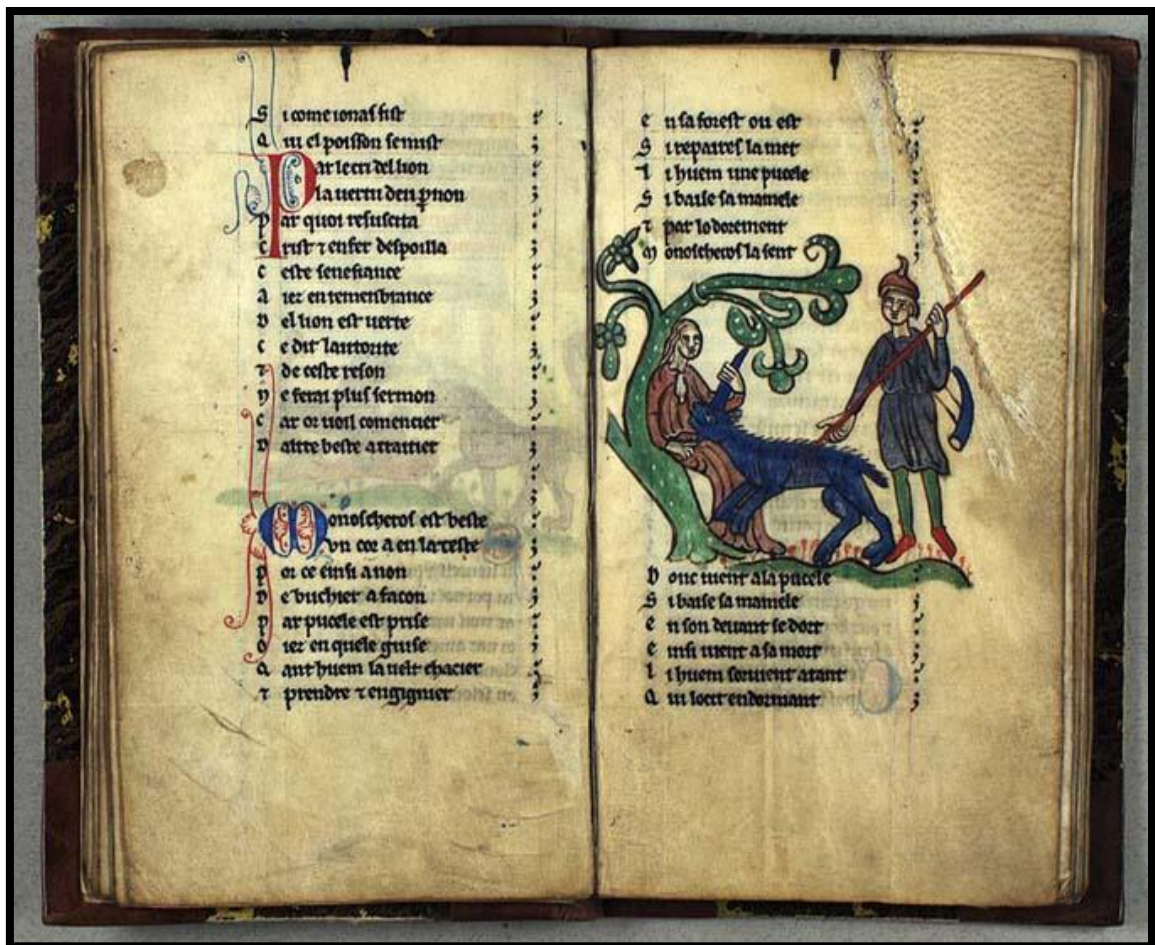 Si come ionas fist
Qui el poisson se mist
Par le cri del lion
la uertu deu pnon
Par quoi resuscita
Crist ⁊ enfer despoilla
Ceste senefiance
Aiez en remenbrance
Del lion est uerte
Ce dit lautorite
⁊ de ceste reson
Ne ferai plus sermon
Car or uoil comencier
Daltre beste a traitier
Monoscheros est beste
Vn cor a en la teste
Por ce einsi a non
De buchier a facon
Par pucele est prise
Oiez en quele guise
Qant huem la uelt chacier
⁊ prendre ⁊ engignier
En sa forest ou est
Si repaires la met
Li huem une pucele
Si baise sa mamele
⁊ par lodorement
Monoscheros la sent
Donc uient a la pucele
Si baise sa mamele
En son deuant se dort
Einsi uient a sa mort
Li huem soruient atant
Qui locit en dormant